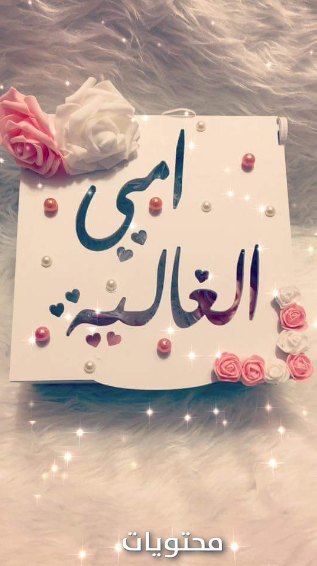 امي
الغالية
محتويات